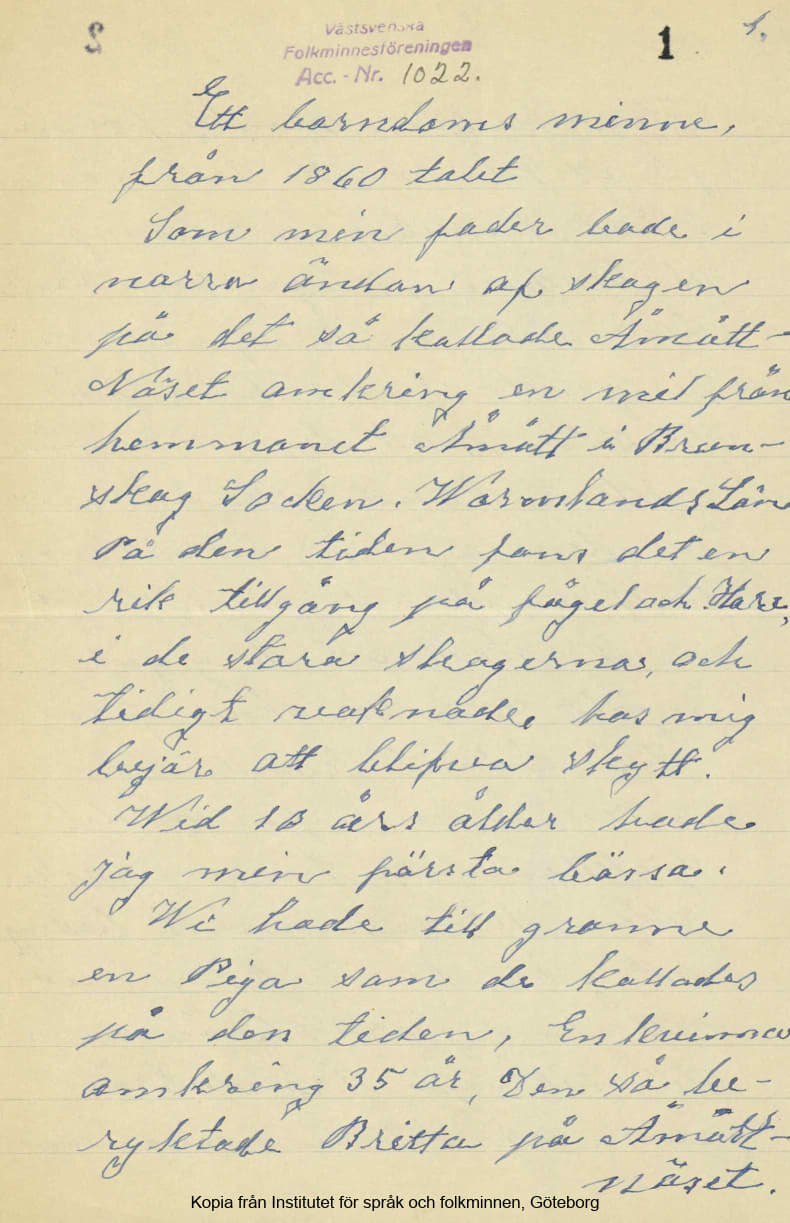 2
Västsvenska
Folkminnesföreningen
Acc. - Nr. 1022.
1
1.
Ett barndoms minne,
från 1860 talet
Som min fader bode i
norra ändan af skogen
på det så kallade Åmått-
Näset omkring en mil från
hemmanet Åmått i Brun-
skog Socken. Wärmlands Län
På den tiden fans det en
rik tillgång på fågel och Hare,
i de stora skogerna, och
tidigt vaknade hos mig
bejär att blifva skytt.
Wid 13 års ålder hade
jag min första bössa.
Wi hade till granne
en Piga som de kallades
på den tiden, En kvinna
omkring 35 år, Den så be-
ryktade Britta på Åmått-
näset.
Kopia från Institutet för språk och folkminnen, Göteborg